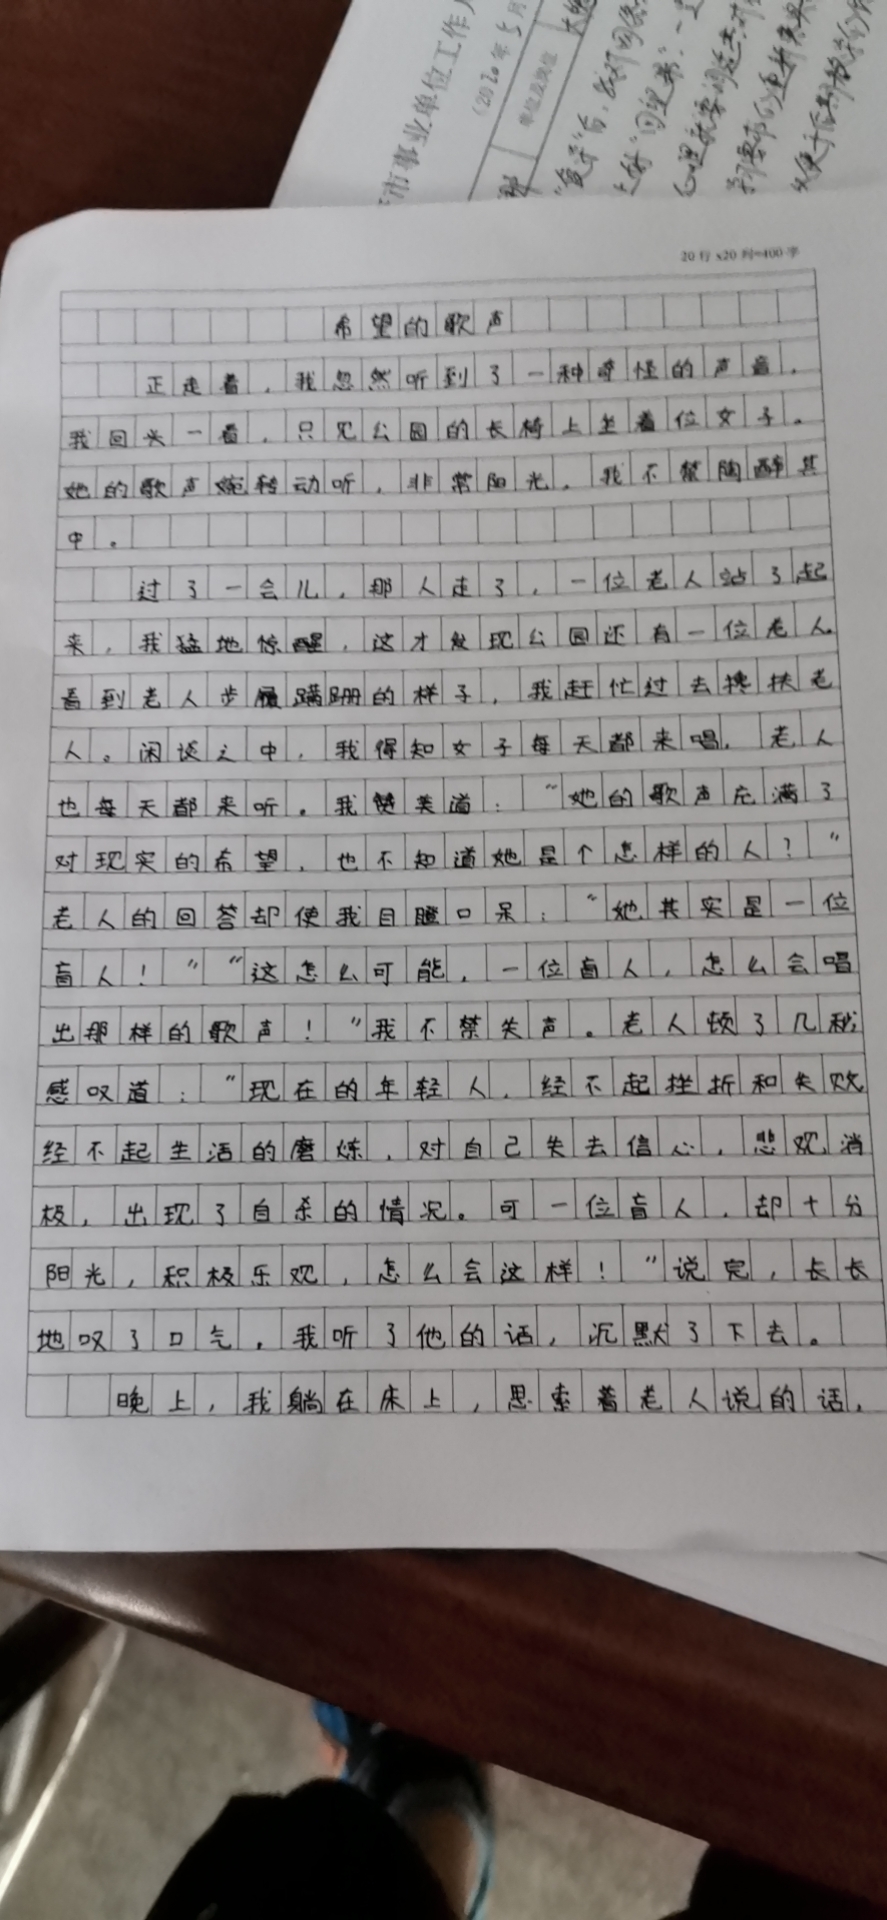 市事业单位工作人
(2020年5月
单位及岗位
20行 x20列=400字
希望的歌声
正走着，我忽然听到了一种奇怪的声音，
我回头一看，只见公园的长椅上坐着位女子。
她的歌声婉转动听，非常阳光，我不禁陶醉其
中。
过了一会儿，那人走了，一位老人站了起
来，我猛地惊醒，这才发现公园还有一位老人。
看到老人步履蹒跚的样子，我赶忙过去搀扶老
人。闲谈之中，我得知女子每天都来唱，老人
也每天都来听。我赞美道：“她的歌声充满了
对现实的希望，也不知道她是个怎样的人？”
老人的回答却使我目瞪口呆：“她其实是一位
盲人！”“这怎么可能，一位盲人，怎么会唱
出那样的歌声！”我不禁失声。老人顿了几秒，
感叹道：“现在的年轻人，经不起挫折和失败
经不起生活的磨炼，对自己失去信心，悲观消
极，出现了自杀的情况。可一位盲人，却十分
阳光，积极乐观，怎么会这样！”说完，长长
地叹了口气，我听了他的话，沉默了下去。
晚上，我躺在床上，思索着老人说的话，